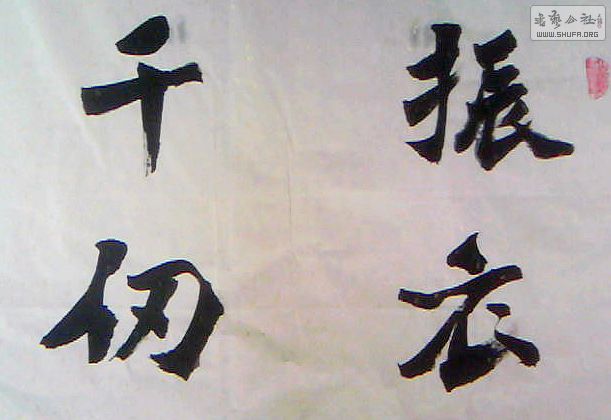 振衣
千仞
书艺公社
WWW.SHUFA.ORG